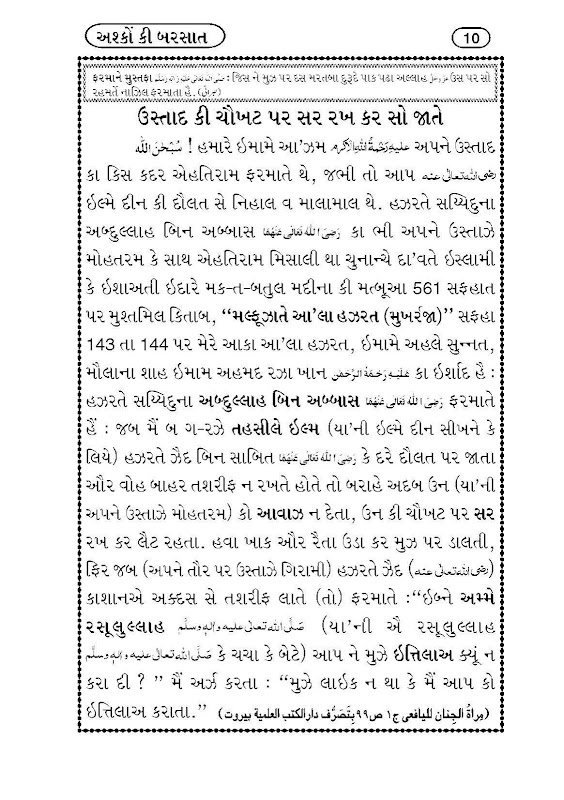 અશ્કોં કી બરસાત
10
ફરમાને મુસ્તફા صَلَّى اللهُ تَعَالٰى عَلَيْهِ وَاٰلِهٖ وَسَلَّم : જિસ ને મુઝ પર દસ મરતબા દુરૂદે પાક પઢા અલ્લાહ عَزَّوَجَلَّ ઉસ પર સો
રહમતેં નાઝિલ ફરમાતા હૈ.
ઉસ્તાદ કી ચૌખટ પર સર રખ કર સો જાતે
سُبْحٰنَ اللّٰه ! હમારે ઇમામે આ'ઝમ عليه رَحْمَةُ اللهِ الْاَكْرَم અપને ઉસ્તાદ
કા કિસ કદર એહતિરામ ફરમાતે થે, જભી તો આપ رضى الله تعالٰى عنه
ઇલ્મે દીન કી દૌલત સે નિહાલ વ માલામાલ થે. હઝરતે સય્યિદુના
અબ્દુલ્લાહ બિન અબ્બાસ رَضِىَ اللهُ تَعَالٰى عَنْهُمَا કા ભી અપને ઉસ્તાઝે
મોહતરમ કે સાથ એહતિરામ મિસાલી થા ચુનાન્ચે દા'વતે ઇસ્લામી
કે ઇશાઅતી ઇદારે મક-ત-બતુલ મદીના કી મત્બૂઆ 561 સફહાત
પર મુશ્તમિલ કિતાબ, ‘‘મલ્ફૂઝાતે આ'લા હઝરત (મુખર્રજા)’’ સફહા
143 તા 144 પર મેરે આકા આ'લા હઝરત, ઇમામે અહલે સુન્નત,
મૌલાના શાહ ઇમામ અહમદ રઝા ખાન عَلَيْهِ رَحْمَةُ الرَّحْمٰن કા ઇર્શાદ હૈ :
હઝરતે સય્યિદુના અબ્દુલ્લાહ બિન અબ્બાસ رَضِىَ اللهُ تَعَالٰى عَنْهُمَا ફરમાતે
હૈં : જબ મૈં બ ગ-રઝે તહસીલે ઇલ્મ (યા'ની ઇલ્મે દીન સીખને કે
લિયે) હઝરતે ઝૈદ બિન સાબિત رَضِىَ اللهُ تَعَالٰى عَنْهُمَا કે દરે દૌલત પર જાતા
ઔર વોહ બાહર તશરીફ ન રખતે હોતે તો બરાહે અદબ ઉન (યા'ની
અપને ઉસ્તાઝે મોહતરમ) કો આવાઝ ન દેતા, ઉન કી ચૌખટ પર સર
રખ કર લૈટ રહતા. હવા ખાક ઔર રૈતા ઉડા કર મુઝ પર ડાલતી,
ફિર જબ (અપને તૌર પર ઉસ્તાઝે ગિરામી) હઝરતે ઝૈદ (رضى الله تعالٰى عنه)
કાશાનએ અક્દસ સે તશરીફ લાતે (તો) ફરમાતે :‘‘ઇબ્ને અમ્મે
રસૂલુલ્લાહ صَلَّى الله تعالٰى عليه واٰله وسلَّم (યા'ની ઐ રસૂલુલ્લાહ
صَلَّى الله تعالٰى عليه واٰله وسلَّم કે ચચા કે બેટે) આપ ને મુઝે ઇત્તિલાઅ ક્યૂં ન
કરા દી ? ’’ મૈં અર્ઝ કરતા : ‘‘મુઝે લાઇક ન થા કે મૈં આપ કો
ઇત્તિલાઅ કરાતા.’’ (مِراٰةُ الْجِنان لليافعى ج١ ص٩٩ بِتَصَرُّف دارالكتب العلمية بيروت)